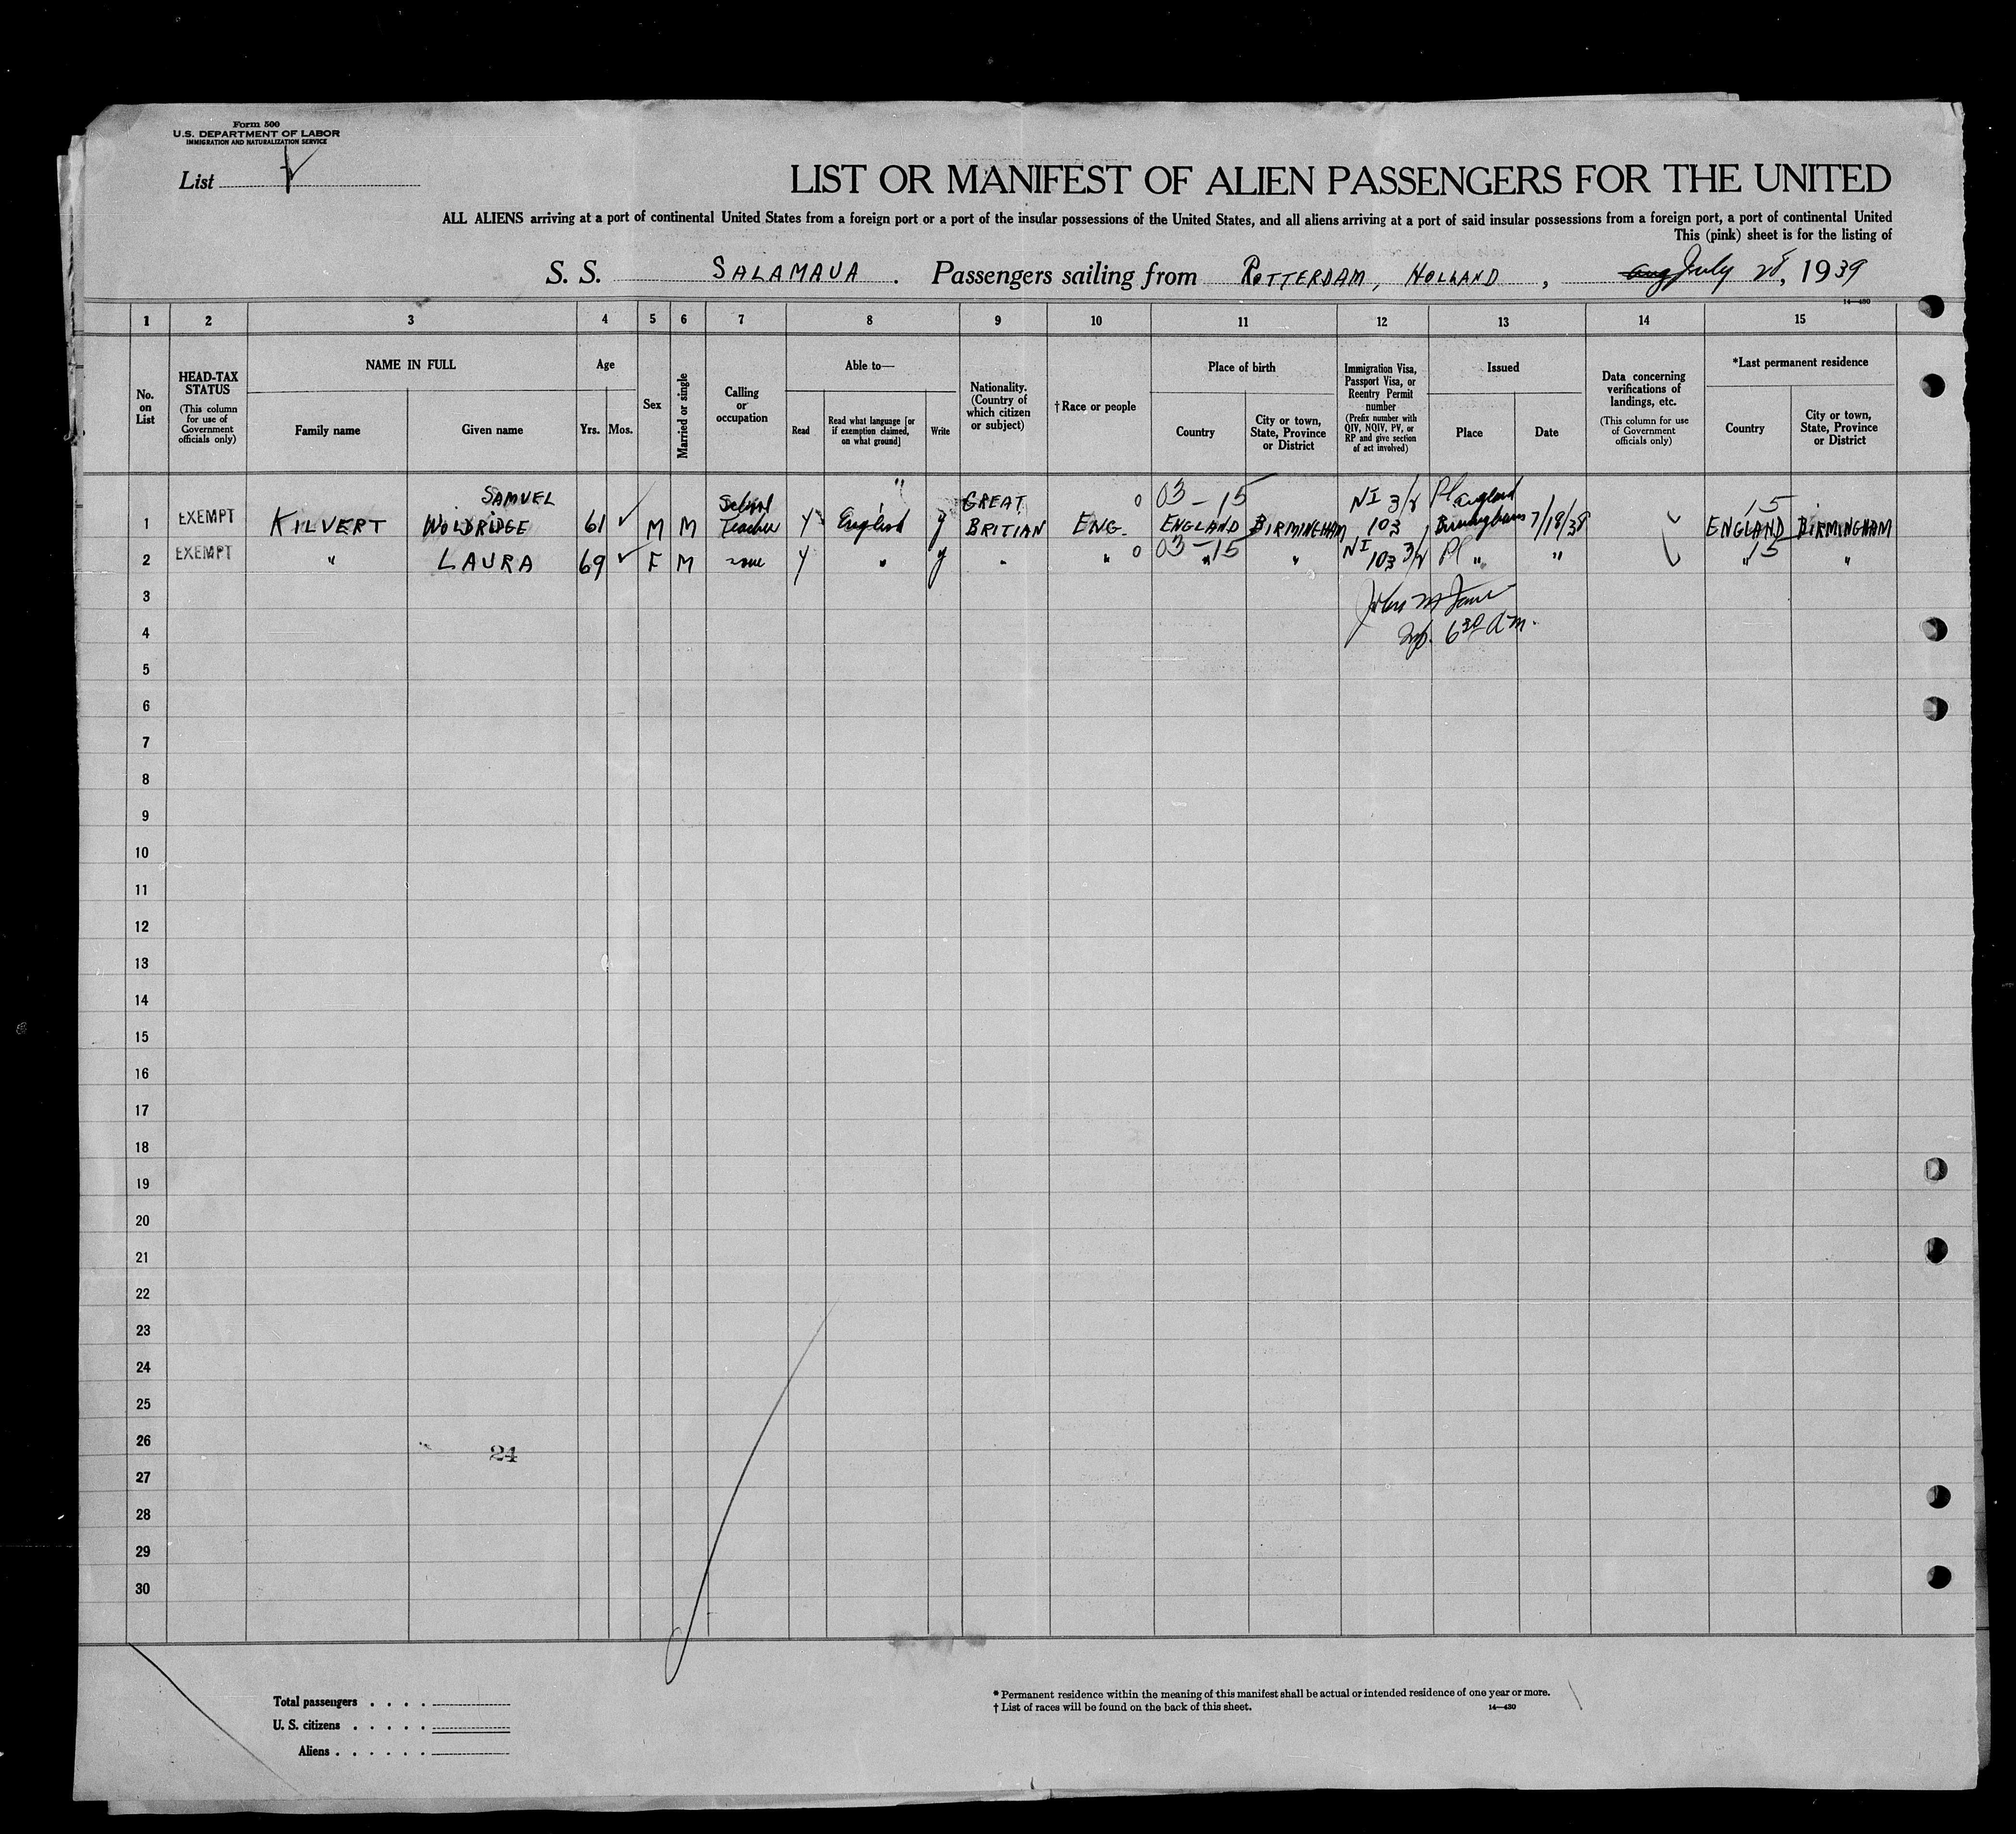 Form 500
U.S. DEPARTMENT OF LABOR
IMMIGRATION AND NATURALIZATION SERVICE
List
LIST OR MANIFEST OF ALIEN PASSENGERS FOR THE UNITED
ALL ALIENS arriving at a port of continental United States from a foreign port or a port of the insular possessions of the United States, and all aliens arriving at a port of said insular possessions from a foreign port, a port of continental United
This (pink) sheet is for the listing of
S. S. SALAMAUA. Passengers sailing from ROTTERDAM, HOLLAND, Aug July 28, 1939
14—430
1 2 3 4 5 6 7 8 9 10 11 12 13 14 15
No. on List
HEAD-TAX STATUS
(This column for use of Government officials only)
NAME IN FULL
Family name
Given name
Age
Yrs.
Mos.
Sex
Married or single
Calling or occupation
Able to—
Read
Read what language [or if exemption claimed, on what ground]
Write
Nationality. (Country of which citizen or subject)
†Race or people
Place of birth
Country
City or town, State, Province or District
Immigration Visa, Passport Visa, or Reentry Permit number
(Prefix number with QIV, NQIV, PV, or RP and give section of act involved)
Issued
Place
Date
Data concerning verifications of landings, etc.
(This column for use of Government officials only)
*Last permanent residence
Country
City or town, State, Province or District
SAMUEL School " GREAT 0 03-15 NI 3/2 Pl England 15
1 EXEMPT KILVERT WOLDRIDGE 61 ✓ M M Teacher Y English y BRITIAN ENG. ENGLAND BIRMINGHAM 103 Birmingham 7/18/39 ENGLAND BIRMINGHAM
0 03-15 NI 15
2 EXEMPT " LAURA 69 ✓ F M none Y " y " " " " 103 3/2 Pl " " " "
3
John M
4
Insp. 6 30 A.M.
5
6
7
8
9
10
11
12
13
14
15
16
17
18
19
20
21
22
23
24
25
26
24
27
28
29
30
Total passengers . . . .
U. S. citizens . . . . .
Aliens . . . . . .
* Permanent residence within the meaning of this manifest shall be actual or intended residence of one year or more.
† List of races will be found on the back of this sheet.
14—430